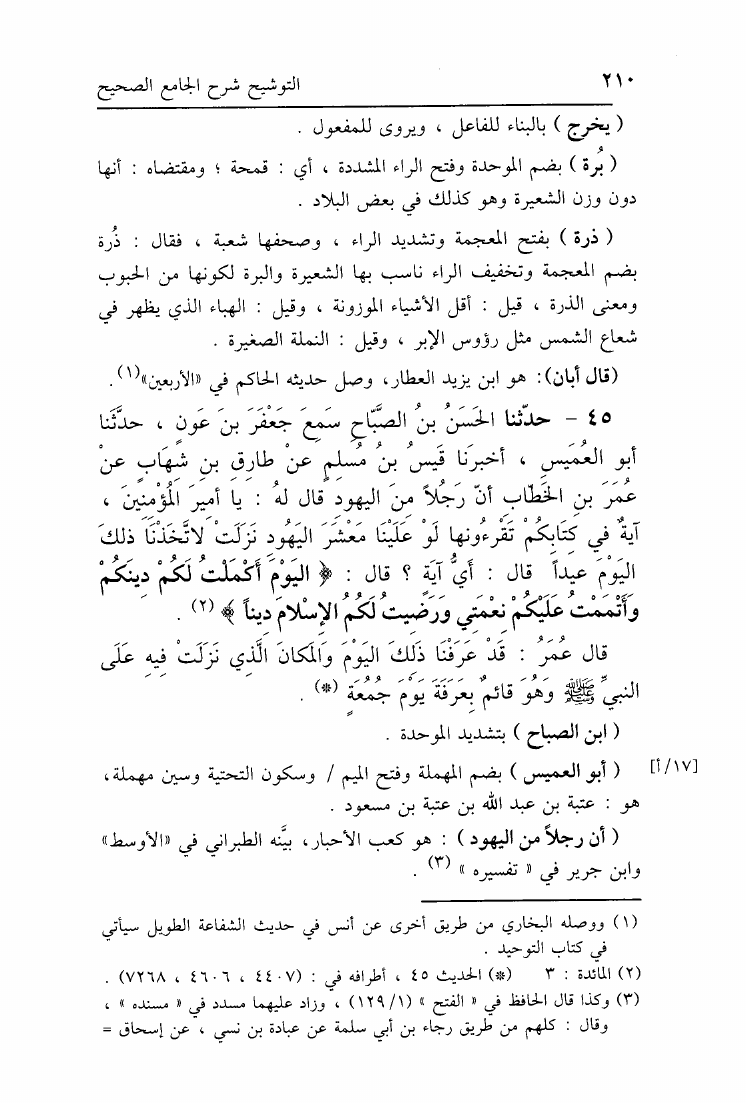 ٢١٠ التوشيح شرح الجامع الصحيح
( يخرج ) بالبناء للفاعل ، ويروى للمفعول .
( بُرة ) بضم الموحدة وفتح الراء المشددة ، أي : قمحة ؛ ومقتضاه : أنها
دون وزن الشعيرة وهو كذلك في بعض البلاد .
( ذرة ) بفتح المعجمة وتشديد الراء ، وصحفها شعبة ، فقال : ذُرة
بضم المعجمة وتخفيف الراء ناسب بها الشعيرة والبرة لكونها من الحبوب
ومعنى الذرة ، قيل : أقل الأشياء الموزونة ، وقيل : الهباء الذي يظهر في
شعاع الشمس مثل رؤوس الإبر ، وقيل : النملة الصغيرة .
(قال أبان): هو ابن يزيد العطار، وصل حديثه الحاكم في «الأربعين»(١).
٤٥ – حدّثنا الحَسَنُ بنُ الصَّبَّاحِ سَمِعَ جَعْفَرَ بنَ عَونٍ ، حدَّثَنا
أبو العُمَيسِ ، أخبرَنا قَيسُ بنُ مُسلمٍ عنْ طارِقِ بنِ شِهابٍ عنْ
عُمَرَ بنِ الخَطّابِ أنّ رَجُلاً منَ اليهودِ قال لهُ : يا أميرَ المُؤْمنِينَ ،
آيةٌ في كِتابِكُمْ تَقْرءُونها لَوْ عَلَيْنا مَعْشَرَ اليَهُودِ نَزَلَتْ لاتَّخَذْنَا ذلكَ
اليَوْمَ عيداً قال : أيُّ آيَةٍ ؟ قال : ﴿ اليَوْمَ أَكْمَلْتُ لَكُمْ دِينَكُمْ
وَأَتْمَمْتُ عَلَيْكُمْ نِعْمَتِي وَرَضِيتُ لَكُمُ الإِسْلامَ دِيناً ﴾ (٢) .
قال عُمَرُ : قَدْ عَرَفْنَا ذَلكَ اليَوْمَ وَالمكانَ الَّذي نَزَلَتْ فِيهِ عَلَى
النبيِّ ﷺ وَهُوَ قائمٌ بِعَرَفَةَ يَوْمَ جُمُعَةٍ (*) .
( ابن الصباح ) بتشديد الموحدة .
( أبو العميس ) بضم المهملة وفتح الميم / وسكون التحتية وسين مهملة، [١٧/أ]
هو : عتبة بن عبد الله بن عتبة بن مسعود .
( أن رجلاً من اليهود ) : هو كعب الأحبار، بيَّنه الطبراني في «الأوسط»
وابن جرير في « تفسيره » (٣) .
(١) ووصله البخاري من طريق أخرى عن أنس في حديث الشفاعة الطويل سيأتي
في كتاب التوحيد .
(٢) المائدة : ٣ (*) الحديث ٤٥ ، أطرافه في : (٤٤٠٧ ، ٤٦٠٦ ، ٧٢٦٨) .
(٣) وكذا قال الحافظ في « الفتح » (١٢٩/١) ، وزاد عليهما مسدد في « مسنده » ،
وقال : كلهم من طريق رجاء بن أبي سلمة عن عبادة بن نسي ، عن إسحاق =